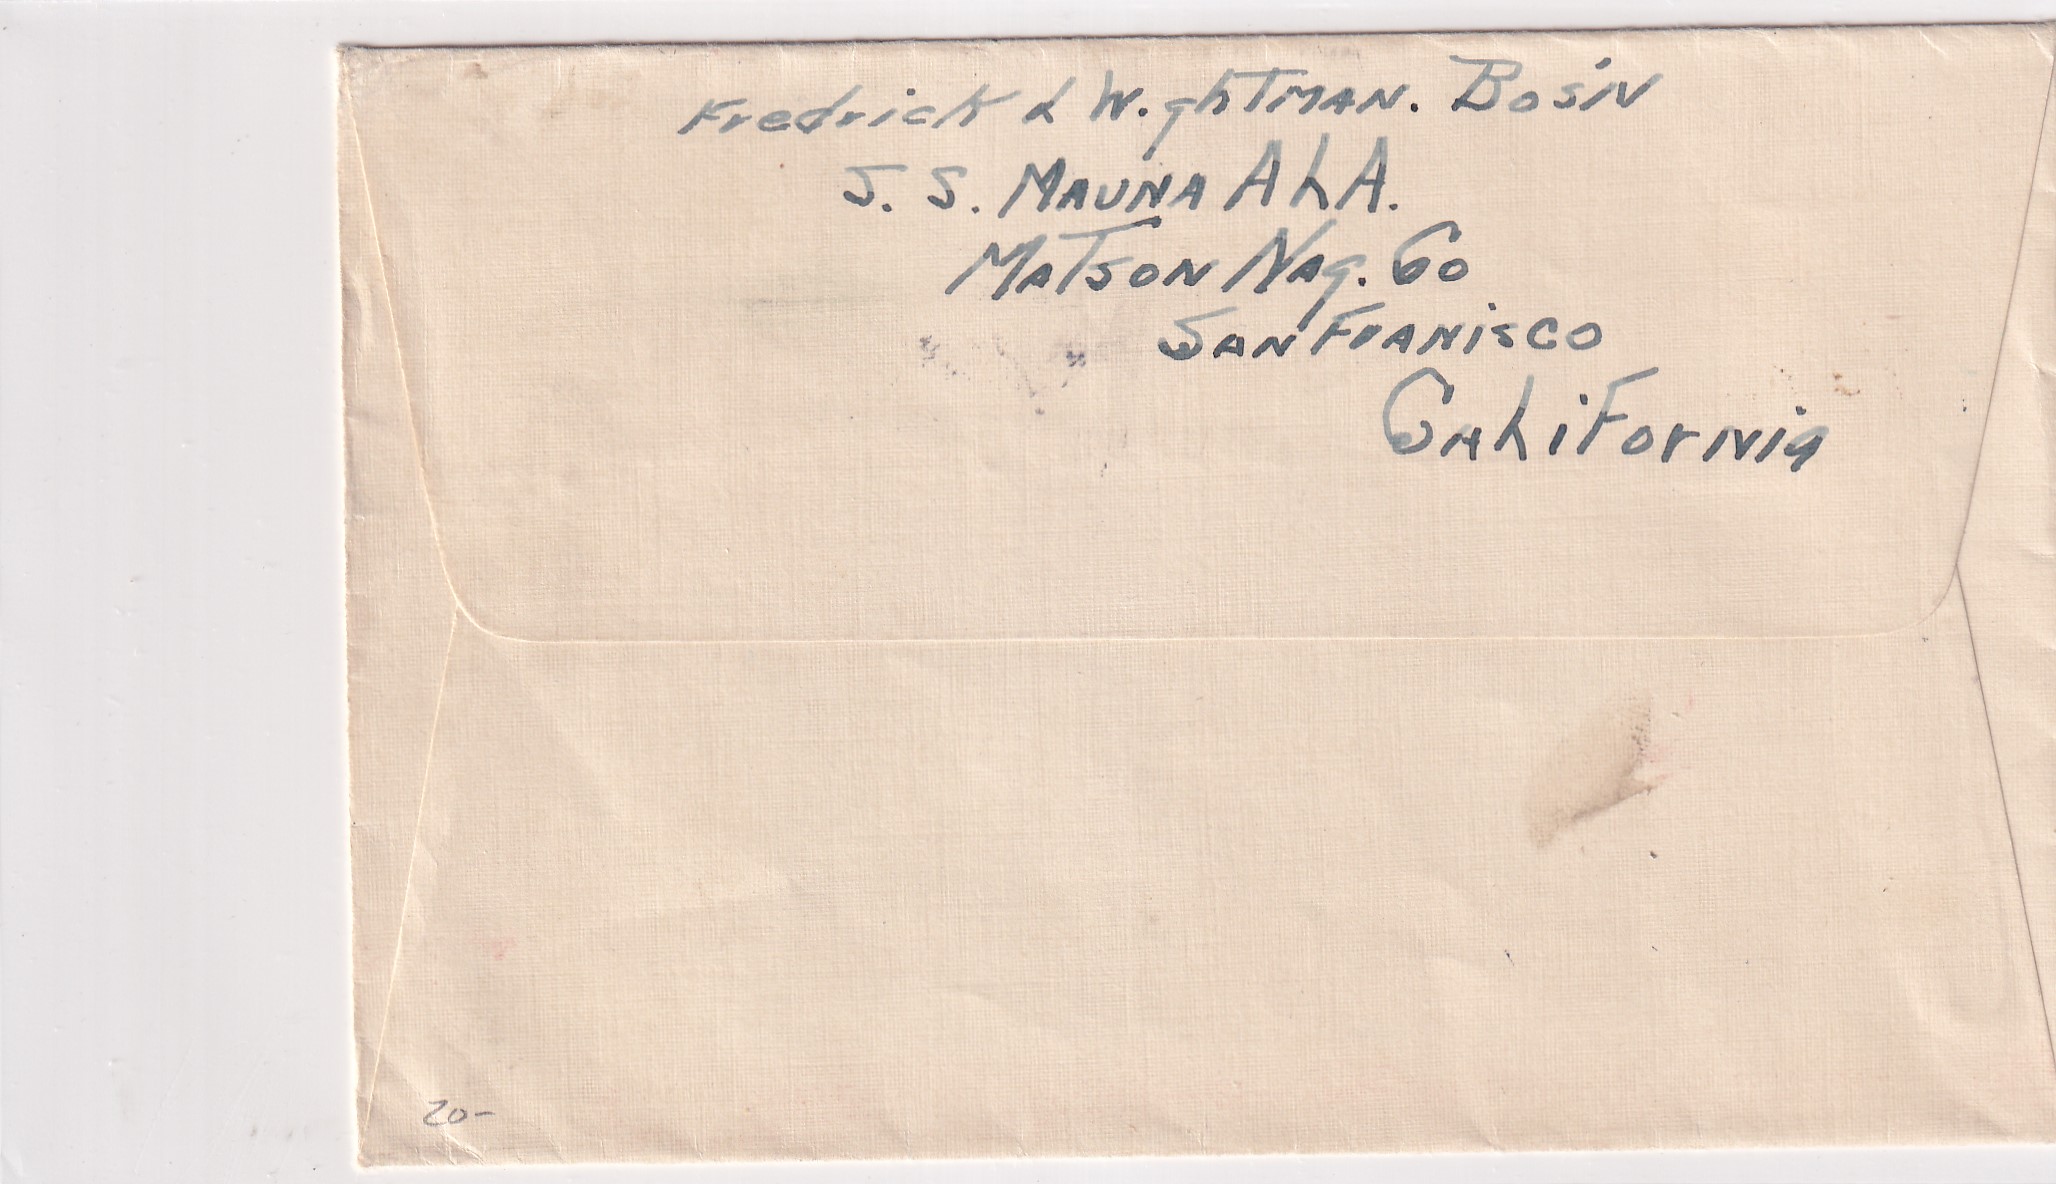 Fredrick L WightMAN. BosiN
S. S. MAUNA ALA.
MATSON Nag. Co
SAN FrANiSCO
CALiForNia
20-